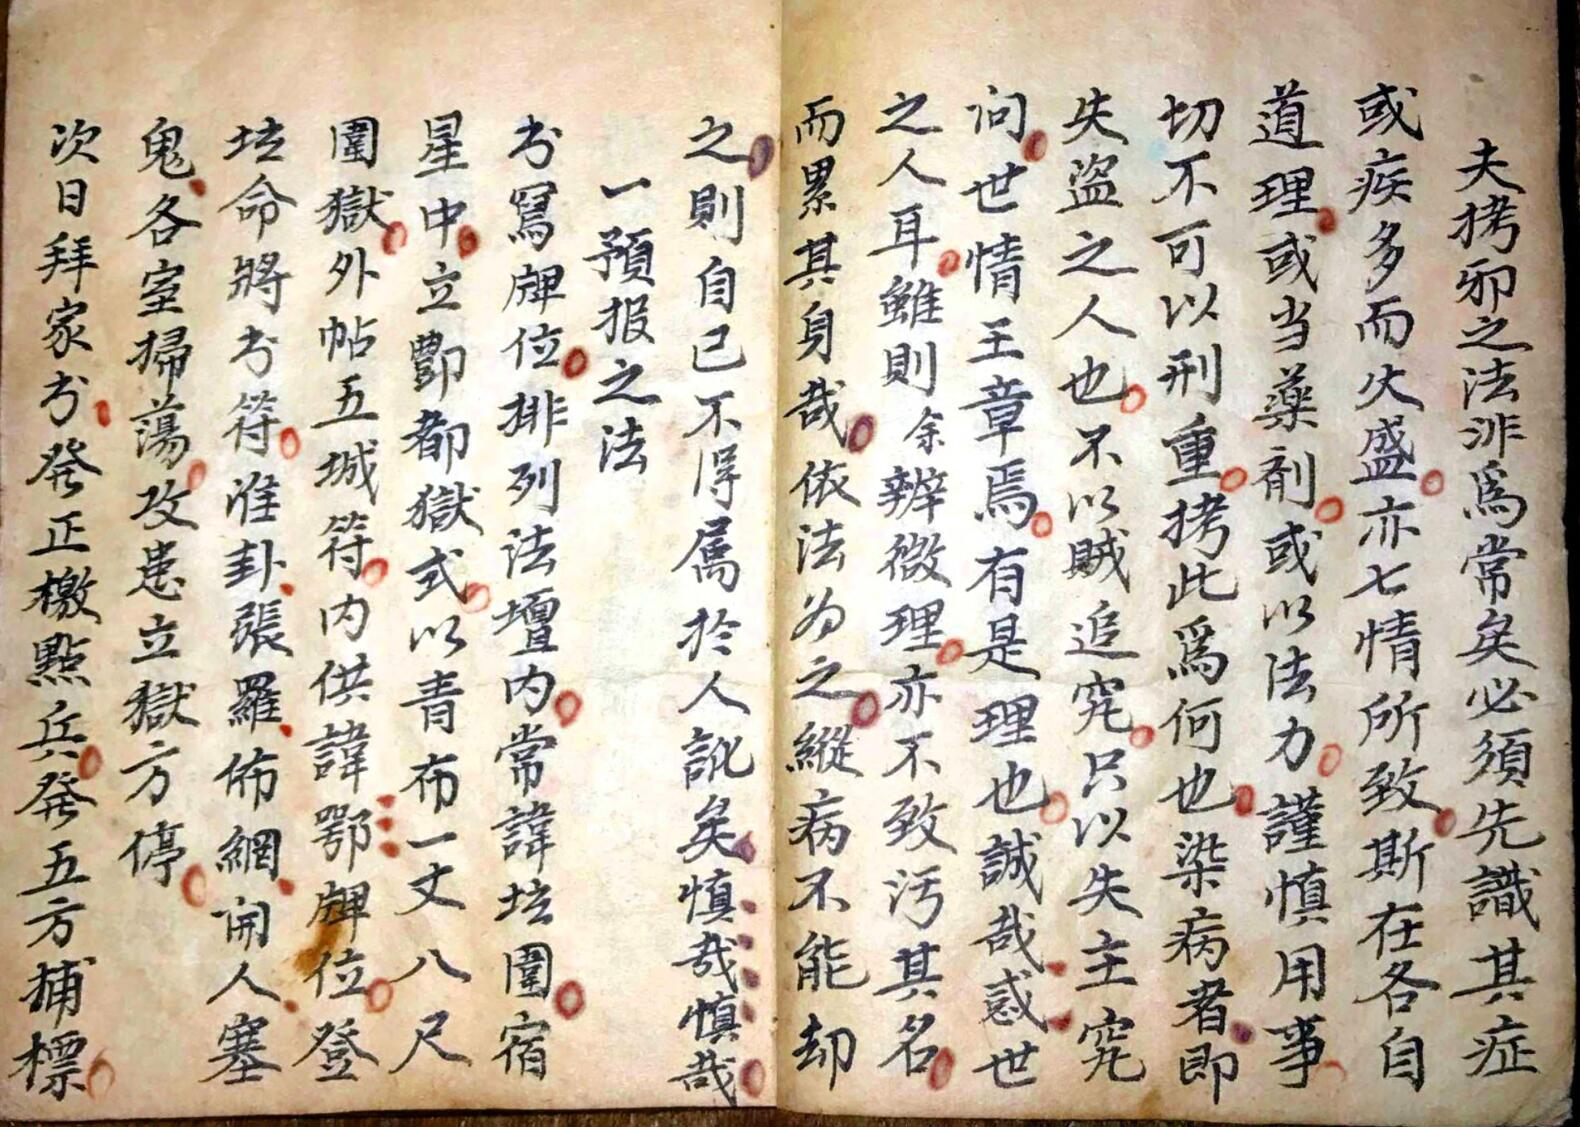 夫拷邪之法非爲常矣必須先識其症
或疾多而火盛亦七情所致斯在各自
道理或当藥劑或以法力謹慎用事
切不可以刑重拷此爲何也染病者即
失盜之人也不以賊追究只以失主究
问世情王章焉有是理也誠哉惑世
之人耳雖則余辨微理亦不致污其名
而累其身哉依法为之縱病不能却
之則自已不得属於人訛矣慎哉慎哉
一預报之法
书寫牌位排列法壇内常諱坛圍宿
星中立酆都獄式以青布一丈八尺
圍獄外帖五城符内供諱鄂牌位登
坛命將书符准卦張羅佈網開人塞
鬼各室掃蕩攻患立獄方停
次日拜家书発正檄點兵発五方捕標